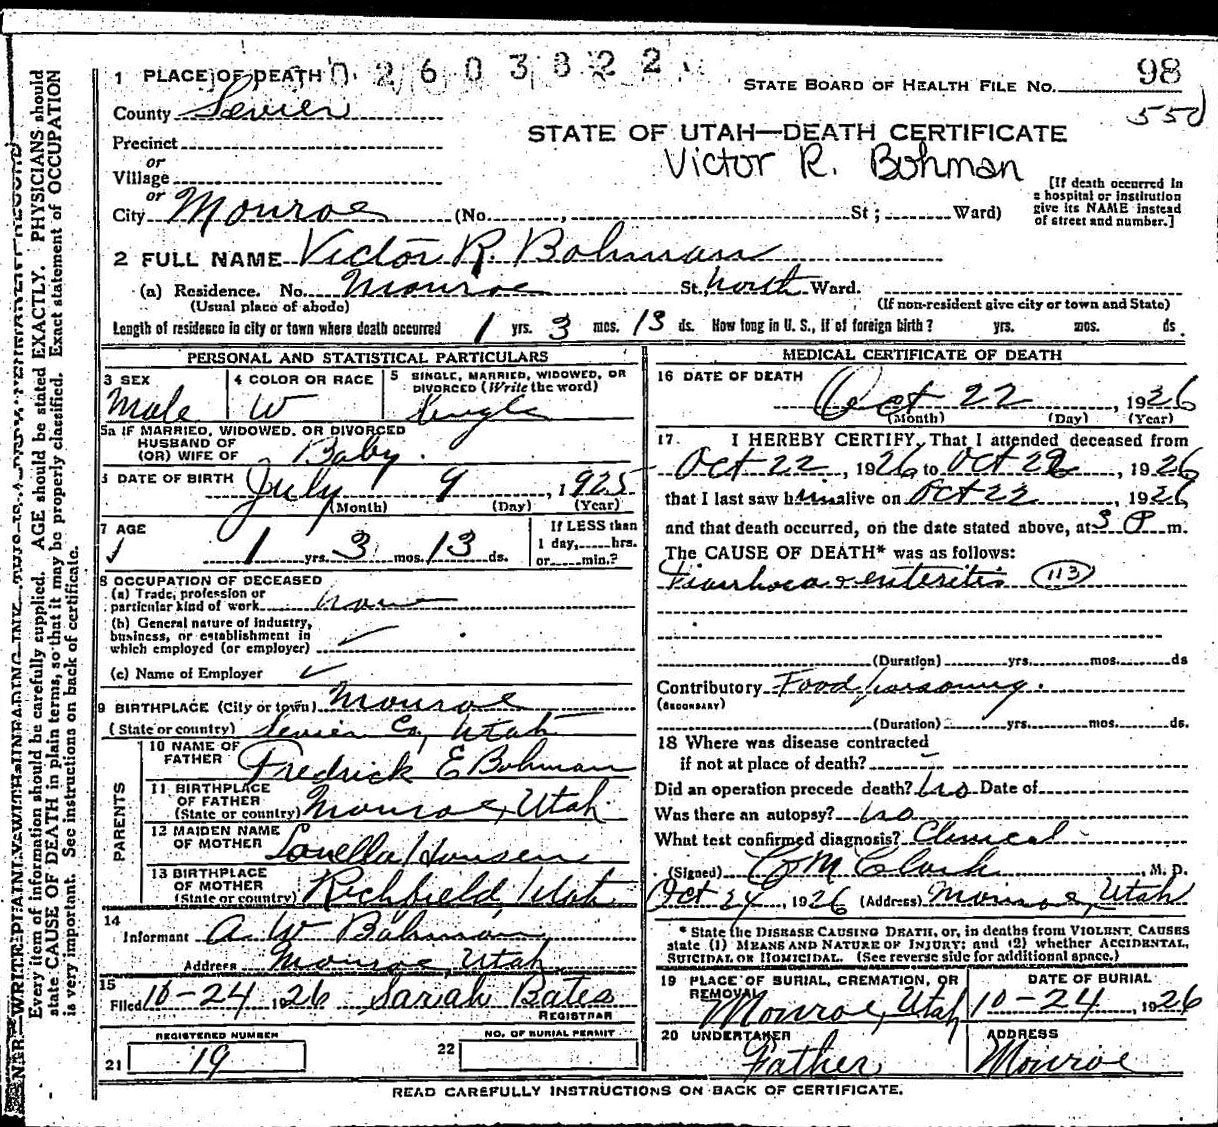 2603822
STATE BOARD OF HEALTH FILE NO. 98
550
STATE OF UTAH—DEATH CERTIFICATE
Victor R. Bohman
1 PLACE OF DEATH
County Sevier
Precinct
or
Village
or
City Monroe (No. , St; Ward)
[If death occurred in
a hospital or institution
give its NAME instead
of street and number.]
2 FULL NAME Victor R. Bohman
(a) Residence. No. Monroe St, North Ward.
(Usual place of abode) (If non-resident give city or town and State)
Length of residence in city or town where death occurred 1 yrs. 3 mos. 13 ds. How long in U. S., if of foreign birth? yrs. mos. ds.
PERSONAL AND STATISTICAL PARTICULARS
3 SEX
Male
4 COLOR OR RACE
W
5 SINGLE, MARRIED, WIDOWED, OR
DIVORCED (Write the word)
Single
5a IF MARRIED, WIDOWED, OR DIVORCED
HUSBAND OF
(OR) WIFE OF Baby.
DATE OF BIRTH July 9, 1925
(Month) (Day) (Year)
7 AGE
1 yrs. 3 mos. 13 ds.
If LESS than
1 day, hrs.
or min.?
8 OCCUPATION OF DECEASED
(a) Trade, profession or
particular kind of work
(b) General nature of industry,
business, or establishment in
which employed (or employer)
(c) Name of Employer
9 BIRTHPLACE (City or town) Monroe
(State or country) Sevier Co, Utah
PARENTS
10 NAME OF
FATHER Fredrick E Bohman
11 BIRTHPLACE
OF FATHER
(State or country) Monroe, Utah.
12 MAIDEN NAME
OF MOTHER Louella Hansen
13 BIRTHPLACE
OF MOTHER
(State or country) Richfield, Utah
14
Informant A. W Bohman
Address Monroe, Utah
15
Filed 10-24 1926 Sarah Bates
REGISTRAR
REGISTERED NUMBER
21 19
NO. OF BURIAL PERMIT
22
MEDICAL CERTIFICATE OF DEATH
16 DATE OF DEATH
Oct 22, 1926
(Month) (Day) (Year)
17. I HEREBY CERTIFY, That I attended deceased from
Oct 22, 1926 to Oct 22, 1926
that I last saw him alive on Oct 22, 1926
and that death occurred, on the date stated above, at 3 P m.
The CAUSE OF DEATH* was as follows:
Diarrhoea & enteritis (113)
(Duration) yrs. mos. ds
Contributory Food poisoning.
(SECONDARY)
(Duration) yrs. mos. ds.
18 Where was disease contracted
if not at place of death?
Did an operation precede death? No Date of
Was there an autopsy? No
What test confirmed diagnosis? Clinical
(Signed) M Clark, M. D.
Oct 24, 1926 (Address) Monroe, Utah
* State the DISEASE CAUSING DEATH, or, in deaths from VIOLENT CAUSES
state (1) MEANS AND NATURE OF INJURY; and (2) whether ACCIDENTAL,
SUICIDAL OR HOMICIDAL. (See reverse side for additional space.)
19 PLACE OF BURIAL, CREMATION, OR
REMOVAL
Monroe, Utah
DATE OF BURIAL
10-24, 1926
20 UNDERTAKER
Father
ADDRESS
Monroe
READ CAREFULLY INSTRUCTIONS ON BACK OF CERTIFICATE.
Every item of information should be carefully supplied. AGE should be stated EXACTLY. PHYSICIANS should
state CAUSE OF DEATH in plain terms, so that it may be properly classified. Exact statement of OCCUPATION
is very important. See instructions on back of certificate.